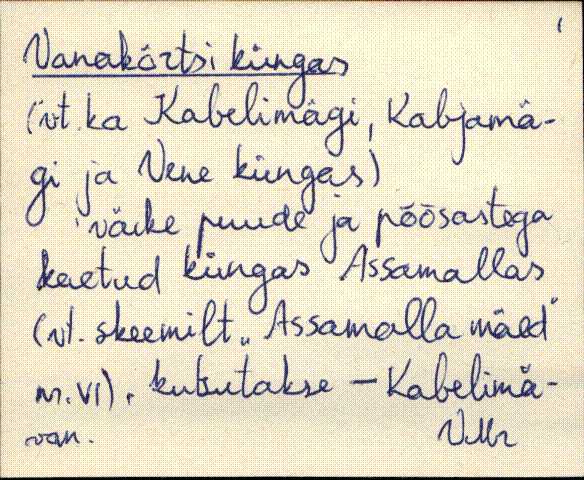 Vanakõrtsi küngas
(vt. ka Kabelimägi, Kabjamä-
gi ja Vene küngas)
väike puude ja põõsastega
kaetud küngas Assamallas
(vt. skeemilt „Assamalla mäed"
nr. VI), kutsutakse — Kabelimä-
van. VMr